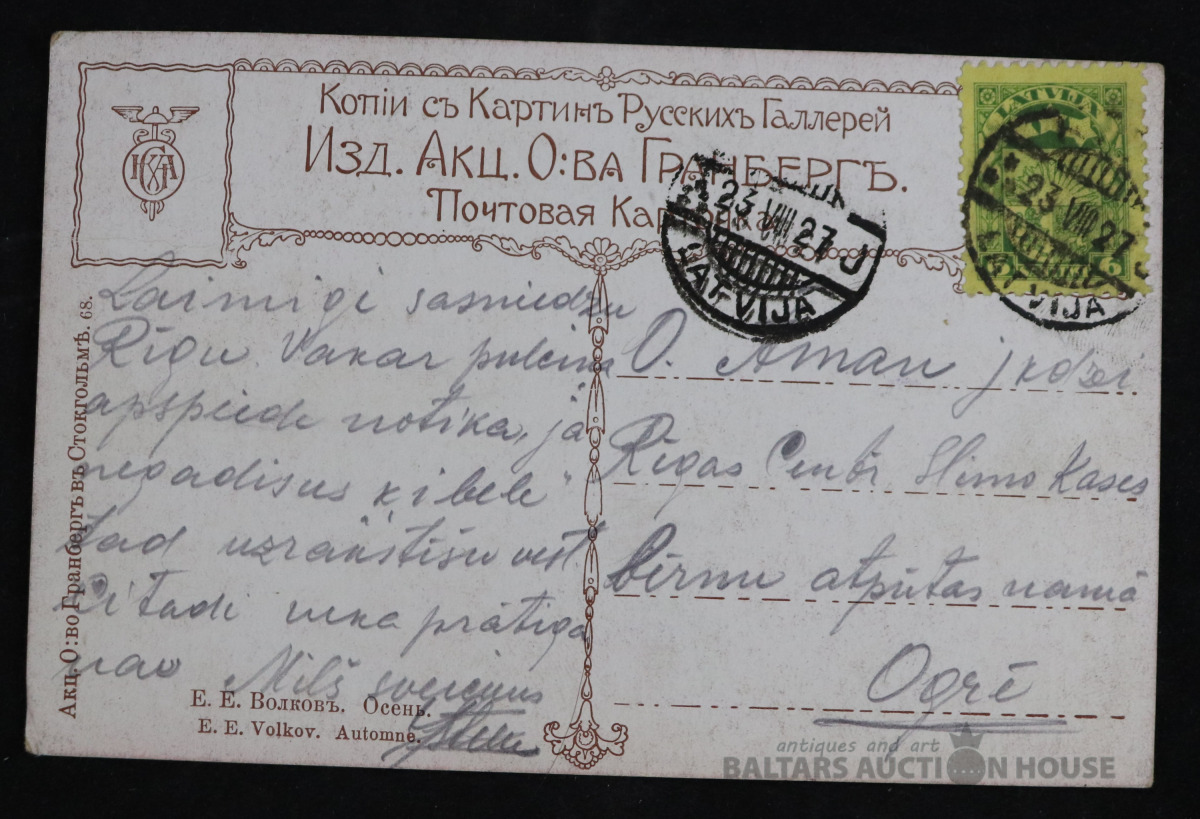 Копіи съ Картинъ Русскихъ Галлерей
Изд. Акц. О:ва Гранбергъ.
Почтовая Карточка
LATVIJA
6
23 VIII 27
LATVIJA
23 VIII 27
LATVIJA
Laimīgi sasniedzu
Rīgu. Vakar
apspiede notika, ja
negadīsus ķibele"
tad uzrakstīšu vēst.
Citadi nekā prātīga
nav Mīļš sveiciens
O. Aman jkdzei
Rīgas Centr. Slimo Kases
bērnu atpūtas namā
Ogrē
Акц. О:во Гранбергъ въ Стокгольмѣ. 68.
Е. Е. Волковъ. Осень.
E. E. Volkov. Automne.
antiques and art
BALTARS AUCTION HOUSE